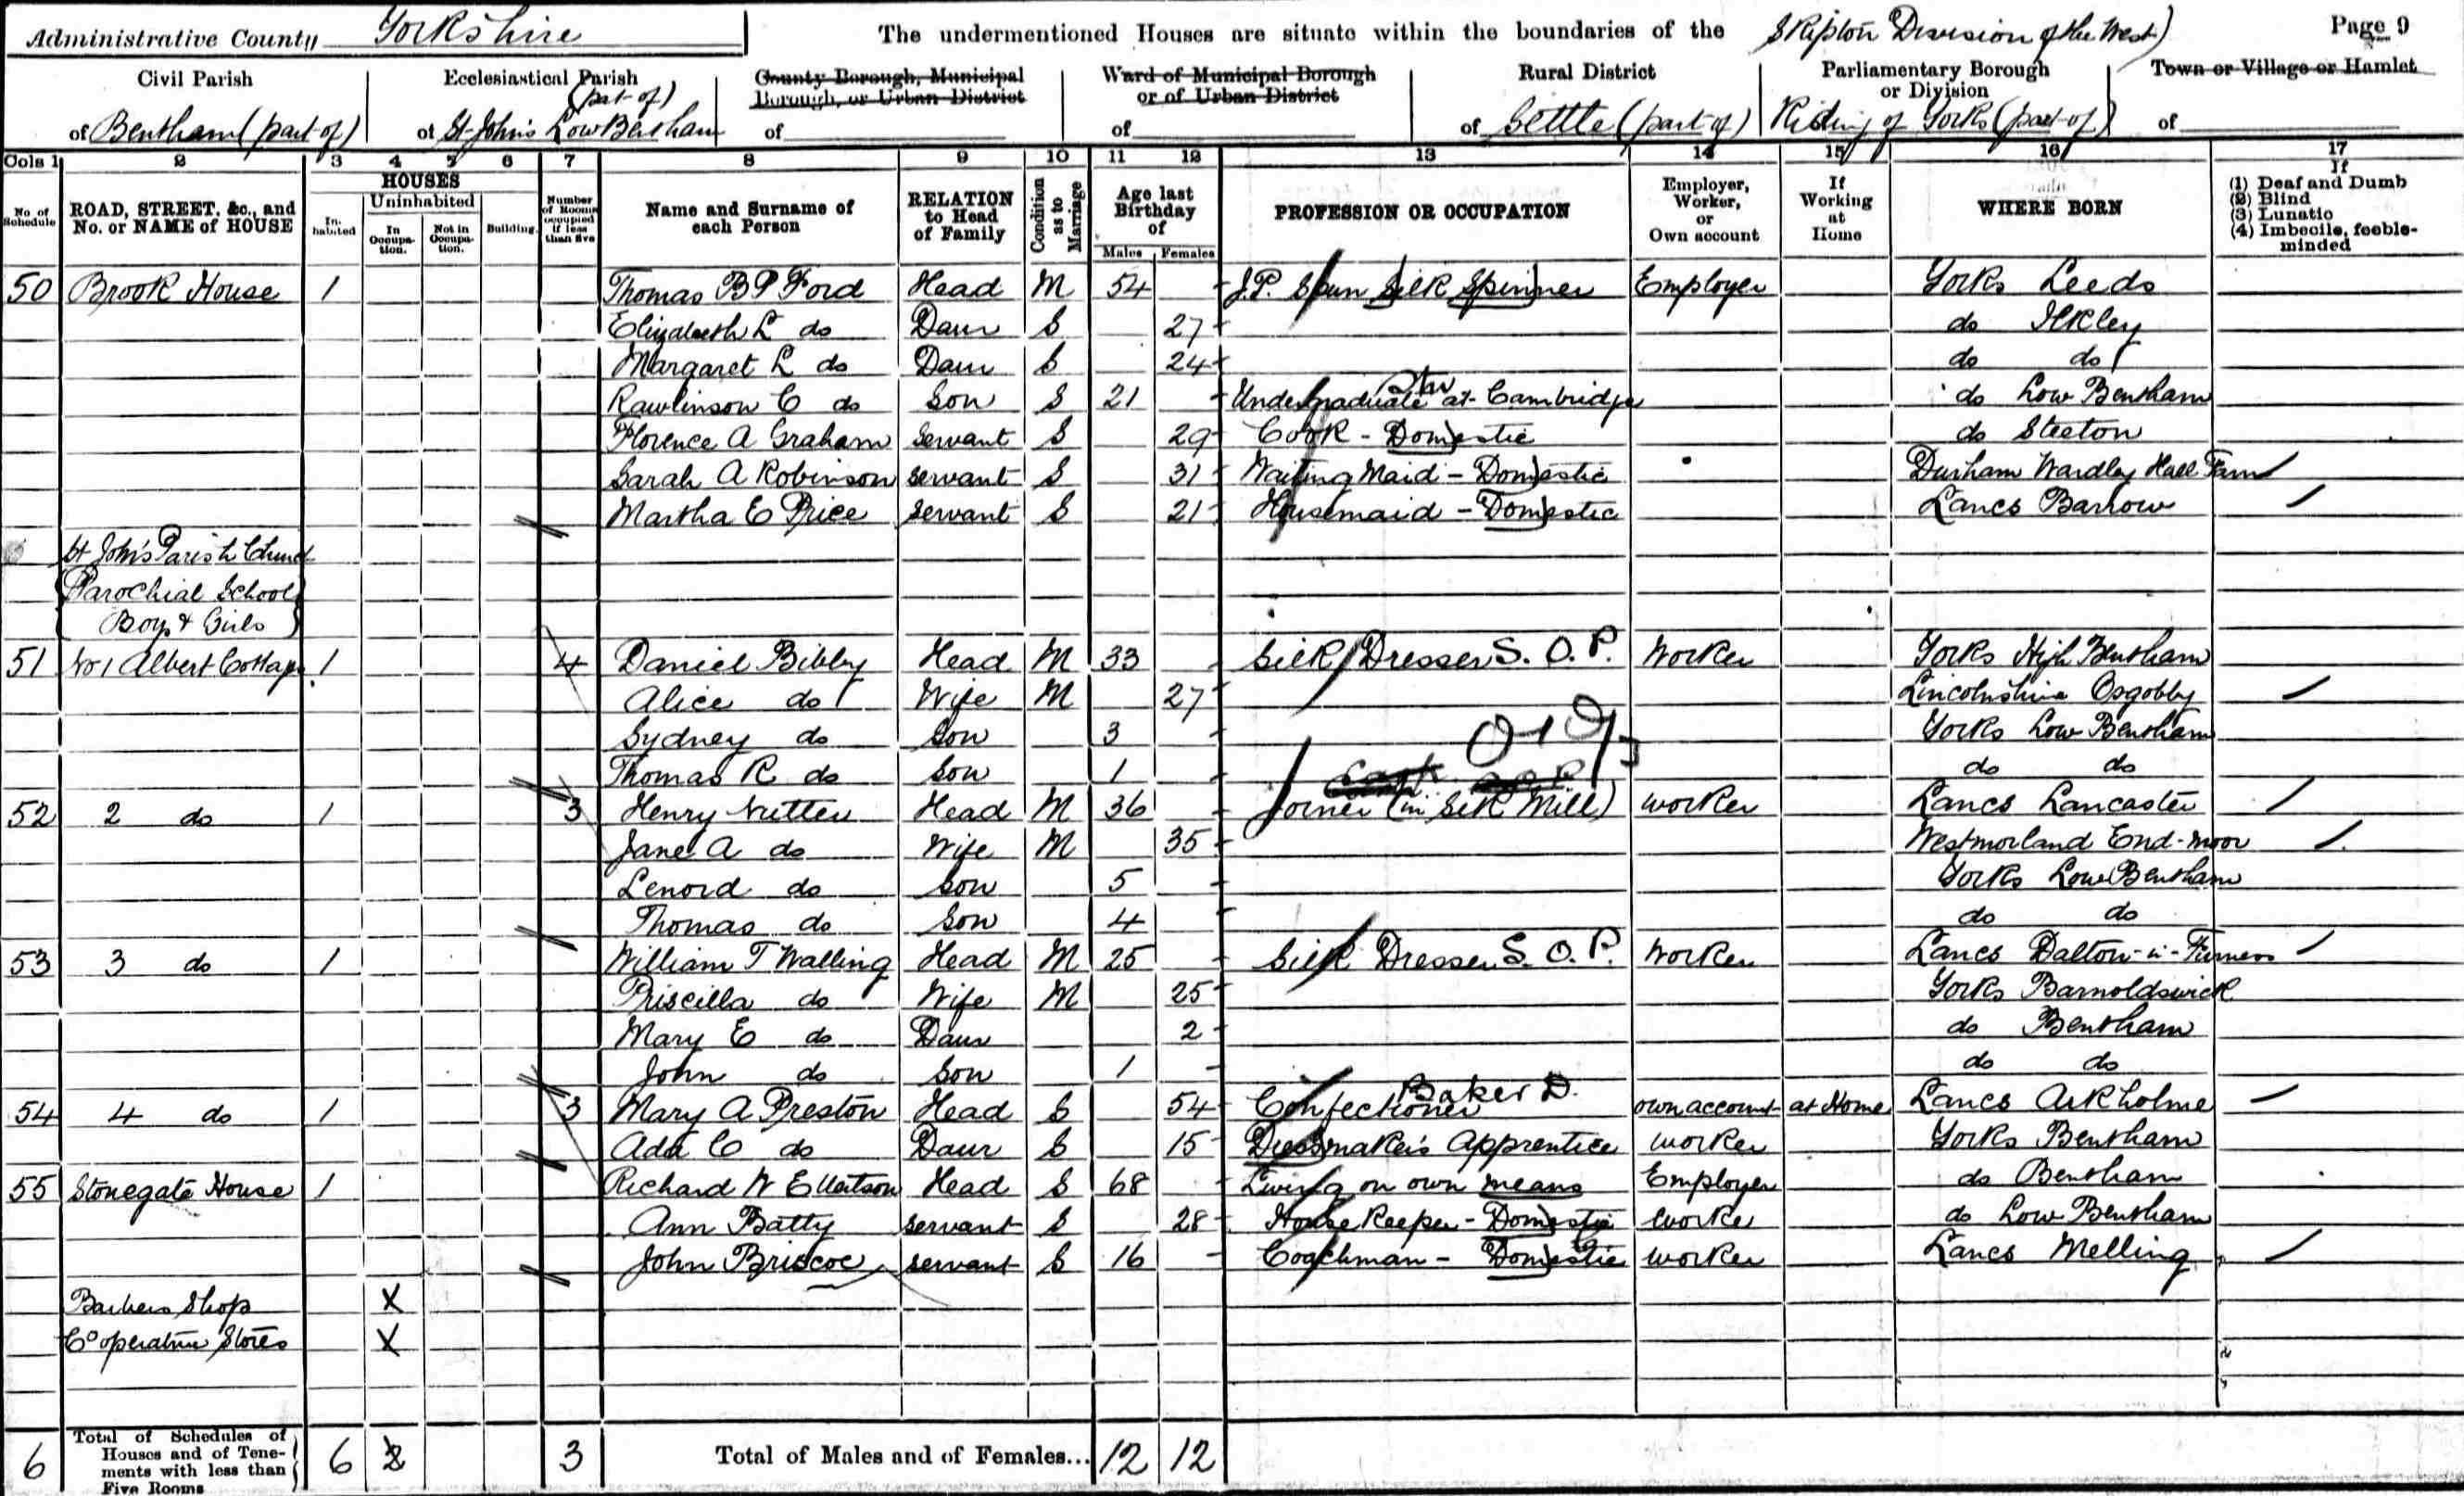 Administrative County Yorkshire The undermentioned Houses are situate within the boundaries of the Skipton Division of the West Page 9
Civil Parish Ecclesiastical Parish County Borough, Municipal Borough, or Urban District Ward of Municipal Borough or of Urban District Rural District Parliamentary Borough or Division Town or Village or Hamlet
of Bentham (part of) of St. John's Low Bentham (part of) of of of Settle (part of) Riding of Yorks (part of) of
Cols 1 2 3 4 5 6 7 8 9 10 11 12 13 14 15 16 17
No of Schedule ROAD, STREET, &c., and No. or NAME of HOUSE HOUSES Inhabited Uninhabited In Occupation. Not in Occupation. Building. Number of Rooms occupied if less than five Name and Surname of each Person RELATION to Head of Family Condition as to Marriage Age last Birthday of Males Females PROFESSION OR OCCUPATION Employer, Worker, or Own account If Working at Home WHERE BORN If (1) Deaf and Dumb (2) Blind (3) Lunatic (4) Imbecile, feeble-minded
50 Brook House 1 Thomas B P Ford Head M 54 J.P. Spun Silk Spinner Employer Yorks Leeds
Elizabeth L do Daur S 27 do Ilkley
Margaret L do Daur S 24 do do
Rawlinson C do Son S 21 Undergraduate at Cambridge do Low Bentham
Florence A Graham Servant S 29 Cook - Domestic do Steeton
Sarah A Robinson servant S 31 Waiting Maid - Domestic Durham Wardley Hall Farm
Martha E Price Servant S 21 Housemaid - Domestic Lancs Barrow
St John's Parish Church
Parochial School
Boys & Girls
51 No 1 Albert Cottage 1 4 Daniel Bibby Head M 33 Silk Dresser S. O. P. Worker Yorks High Bentham
Alice do Wife M 27 Lincolnshire Osgobby
Sydney do Son 3 Yorks Low Bentham
Thomas R do Son 1 do do
52 2 do 1 3 Henry Nutter Head M 36 Joiner (in Silk Mill) worker Lancs Lancaster
Jane A do Wife M 35 Westmorland End-moor
Lenord do Son 5 Yorks Low Bentham
Thomas do Son 4 do do
53 3 do 1 William T Walling Head M 25 Silk Dresser S. O. P. Worker Lancs Dalton-in-Furness
Priscilla do Wife M 25 Yorks Barnoldswick
Mary E do Daur 2 do Bentham
John do Son 1 do do
54 4 do 1 3 Mary A Preston Head S 54 Confectioner Baker D. own account at Home Lancs Arkholme
Ada C do Daur S 15 Dressmaker's Apprentice worker Yorks Bentham
55 Stonegate House 1 Richard W Ellertson Head S 68 Living on own means Employer do Bentham
Ann Batty servant S 28 House Keeper - Domestic worker do Low Bentham
John Briscoe servant S 16 Coachman - Domestic worker Lancs Melling
Barbers Shop X
Co operative Stores X
6 Total of Schedules of Houses and of Tenements with less than Five Rooms 6 2 3 Total of Males and of Females... 12 12